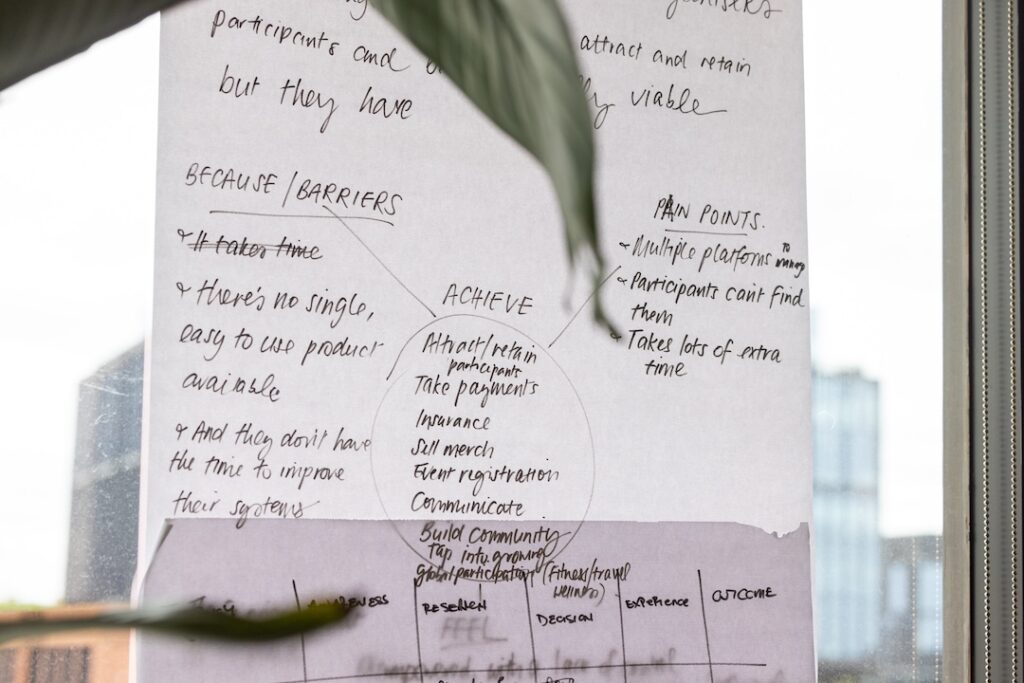 participants and attract and retain
but they have viable
BECAUSE/BARRIERS
It takes time
there's no single,
easy to use product
available
And they don't have
the time to improve
their systems
ACHIEVE
Attract/retain
participants
Take payments
Insurance
Sell merch
Event registration
Communicate
Build community
Tap into growing
global participation (fitness/travel
wellness)
PAIN POINTS.
Multiple platforms to
manage
Participants can't find
them
Takes lots of extra
time
DECISION
EXPERIENCE
OUTCOME
FEEL